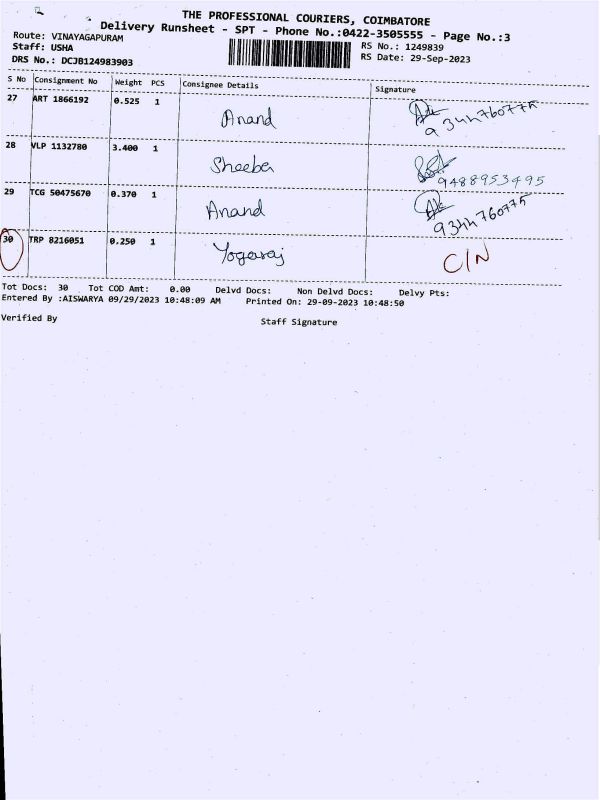 THE PROFESSIONAL COURIERS, COIMBATORE
Delivery Runsheet - SPT - Phone No.:0422-3505555 - Page No.:3
Route: VINAYAGAPURAM
Staff: USHA
RS No.: 1249839
DRS No.: DCJB124983903
RS Date: 29-Sep-2023
S No Consignment No Weight PCS Consignee Details Signature
27 ART 1866192 0.525 1 Anand 9344760775
28 VLP 1132780 3.400 1 Sheeba 9488953495
29 TCG 50475670 0.370 1 Anand 9344760775
30 TRP 8216051 0.250 1 Yogaraj C/N
Tot Docs: 30 Tot COD Amt: 0.00 Delvd Docs: Non Delvd Docs: Delvy Pts:
Entered By :AISWARYA 09/29/2023 10:48:09 AM Printed On: 29-09-2023 10:48:50
Verified By Staff Signature